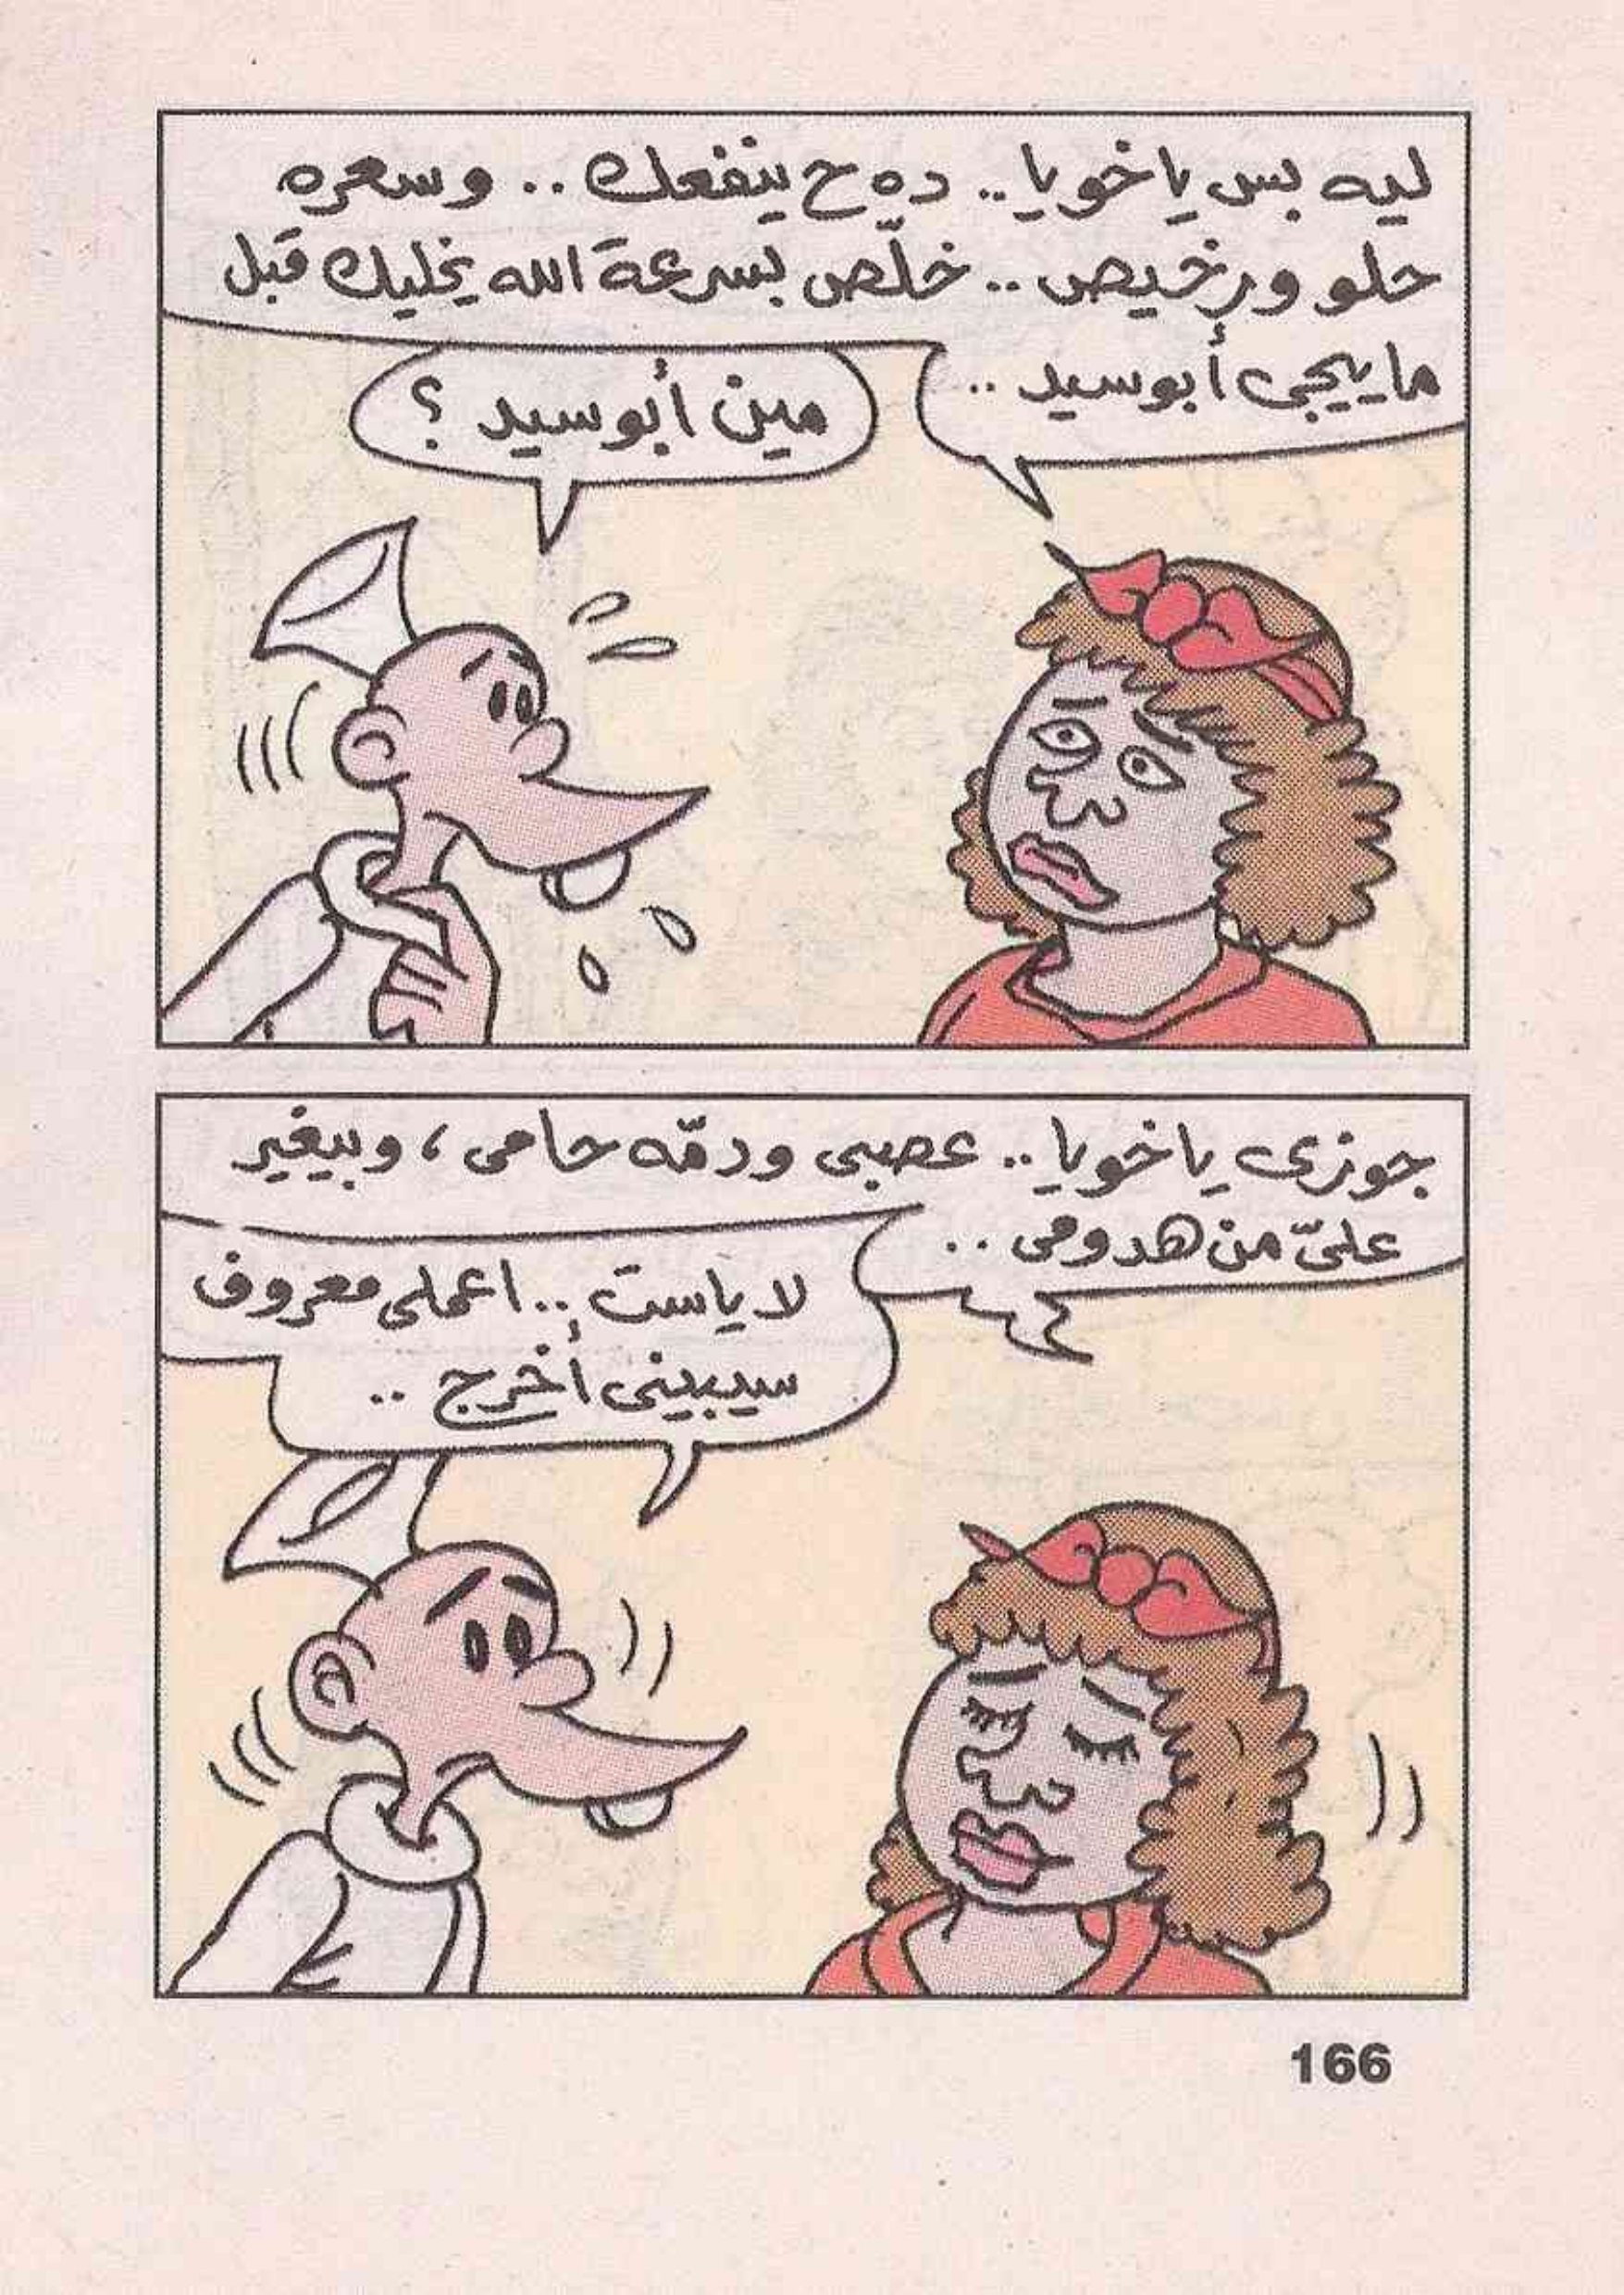 ليه بس ياخويا.. ده ح ينفعك .. وسعره
حلو ورخيص .. خلّص بسرعة الله يخليك قبل
ماييجى أبوسيد ..
مين أبوسيد ؟
جوزى ياخويا .. عصبى ودمّه حامى ، وبيغير
علىّ من هدومى ..
لا ياست .. اعملى معروف
سيبينى أخرج ..
166